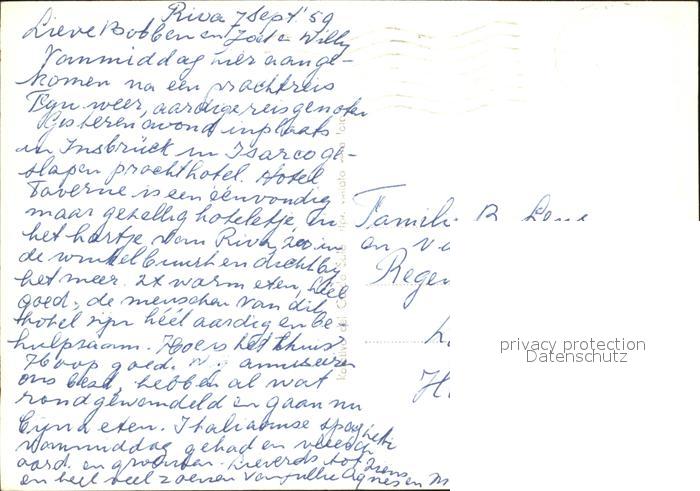 Riva 7 Sept '59
Lieve Bobben en Joät en Willy
Vanmiddag hier aange-
komen na een prachtreis
Fijn weer, aardige reisgenoten
Gisterenavond in plaats
in Insbrück in Isarco ge-
slapen prachthotel. Hotel
Taverne is een éénvondig
maar gezellig hoteletje, in
het hartje van Riva, zoo in
de winkelbuurt en dichtby
het meer. 2x warm eten, héél
goed, de menschen van dit
hotel zijn héél aardig en be-
hulpzaam. Hoe is het thuis
Hoop goed. Wij amuseeren
ons best, hebben al wat
rondgewandeld en gaan nu
bijna eten. Italiaanse spaghetti
vanmiddag gehad en
aard. en groenten. tot ziens
en heel veel zoenen van jullie Agnes en M
Famili R
en
Regen
H
privacy protection
Datenschutz